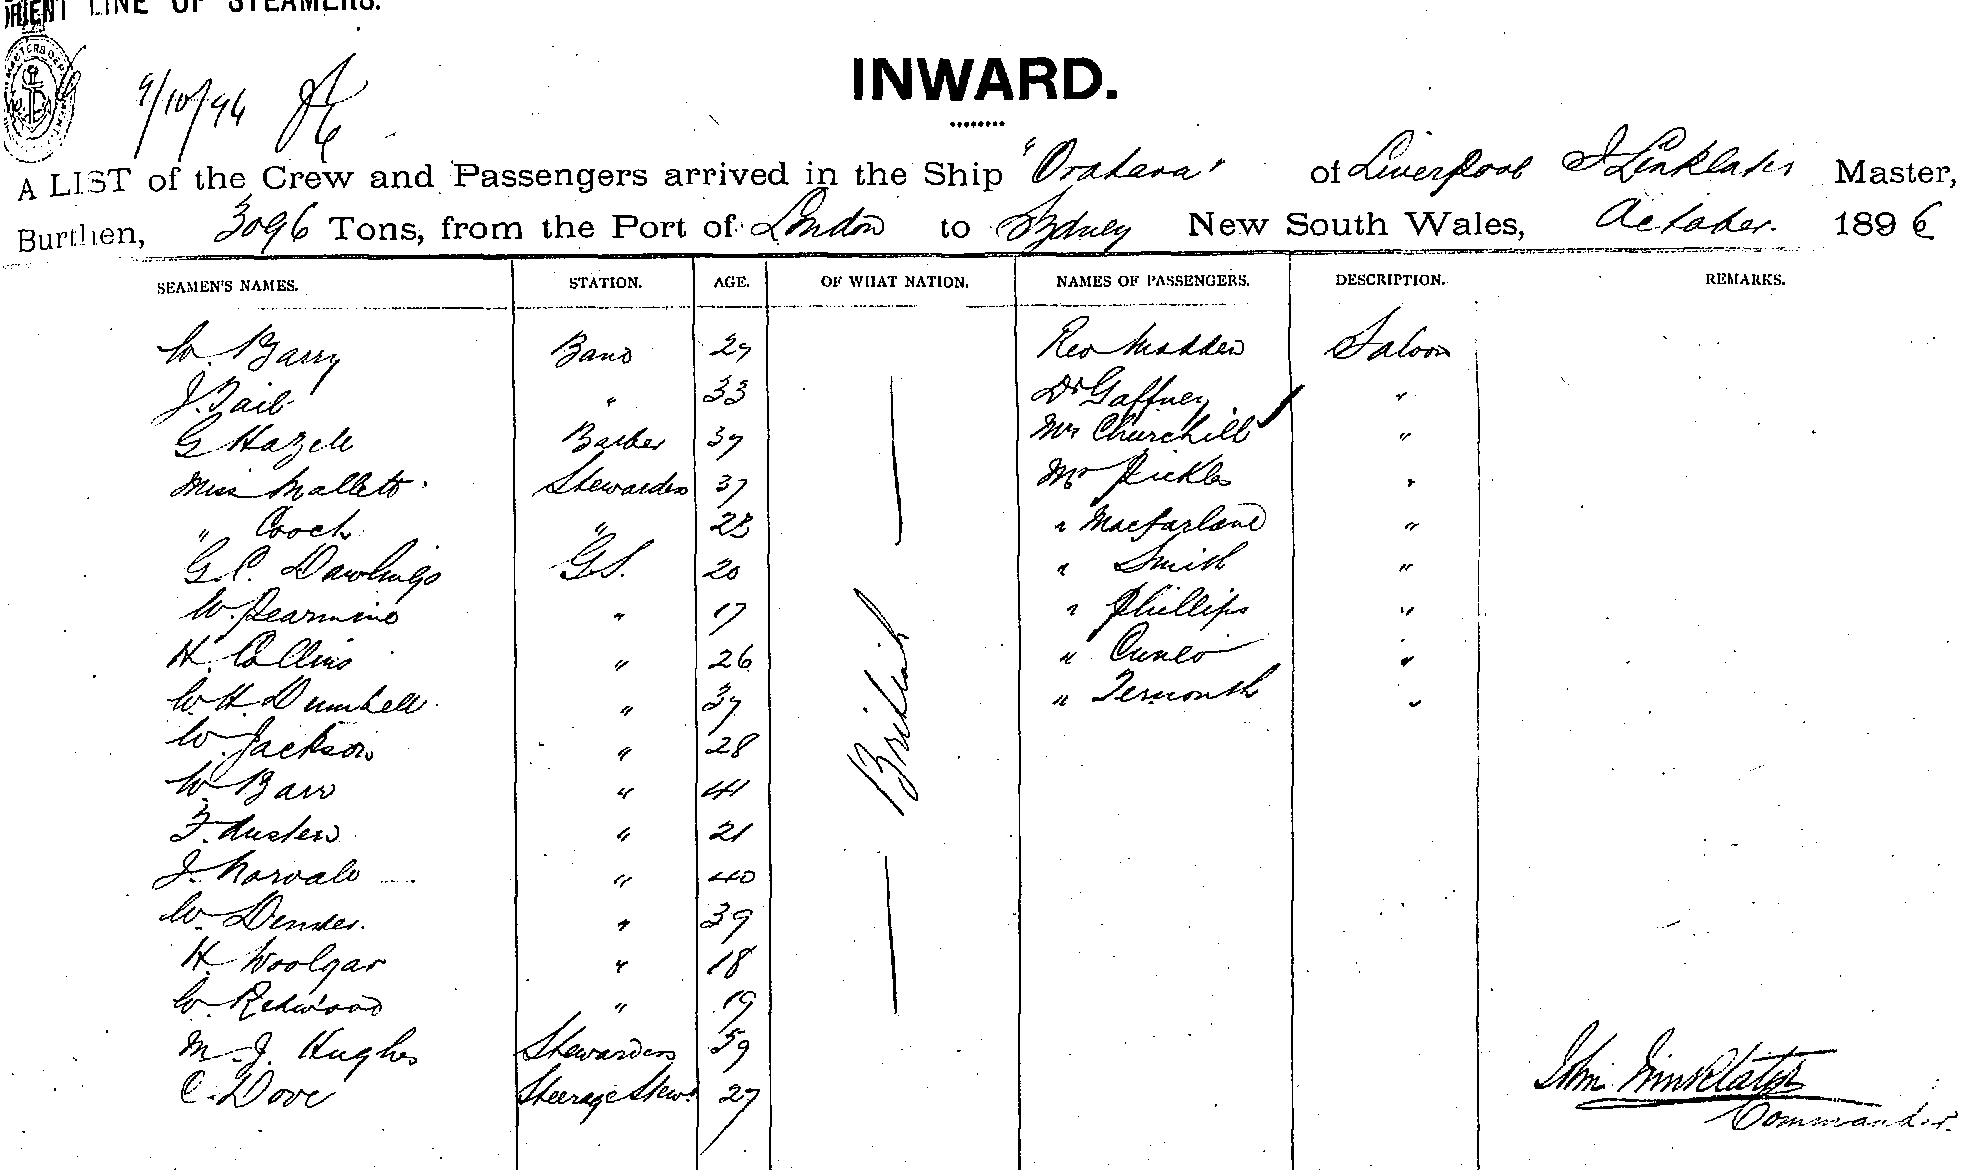 ORIENT LINE OF STEAMERS.
9/10/96
INWARD.
A LIST of the Crew and Passengers arrived in the Ship "Orotava" of Liverpool J Linklater Master,
Burthen, 3096 Tons, from the Port of London to Sydney New South Wales, October. 1896
SEAMEN'S NAMES. STATION. AGE. OF WHAT NATION. NAMES OF PASSENGERS. DESCRIPTION. REMARKS.
W. Barry Band 29 Rev Madden Saloon
J. Tail " 33 Dr Gaffney "
G Hazell Barber 39 Mr Churchill "
Miss Mallett Stewardess 37 Mr Pickles "
" Cooch " 28 " Macfarland "
G.C. Dawlings G.S. 20 " Smith "
W. Pearmine " 17 " Phillips "
H. Collins " 26 " Cuneo "
W.H. Dumbell " 37 " Termonth "
W. Jackson " 28
W. Barr " 41
F. Austen " 21
J. Norvale " 40
W. Denser " 39
H. Woolgar " 18
W. Redwood " 19
M.J. Hughes Stewardess 39
C. Dove Steerage Stewd 27
British
John Linklater
Commander.